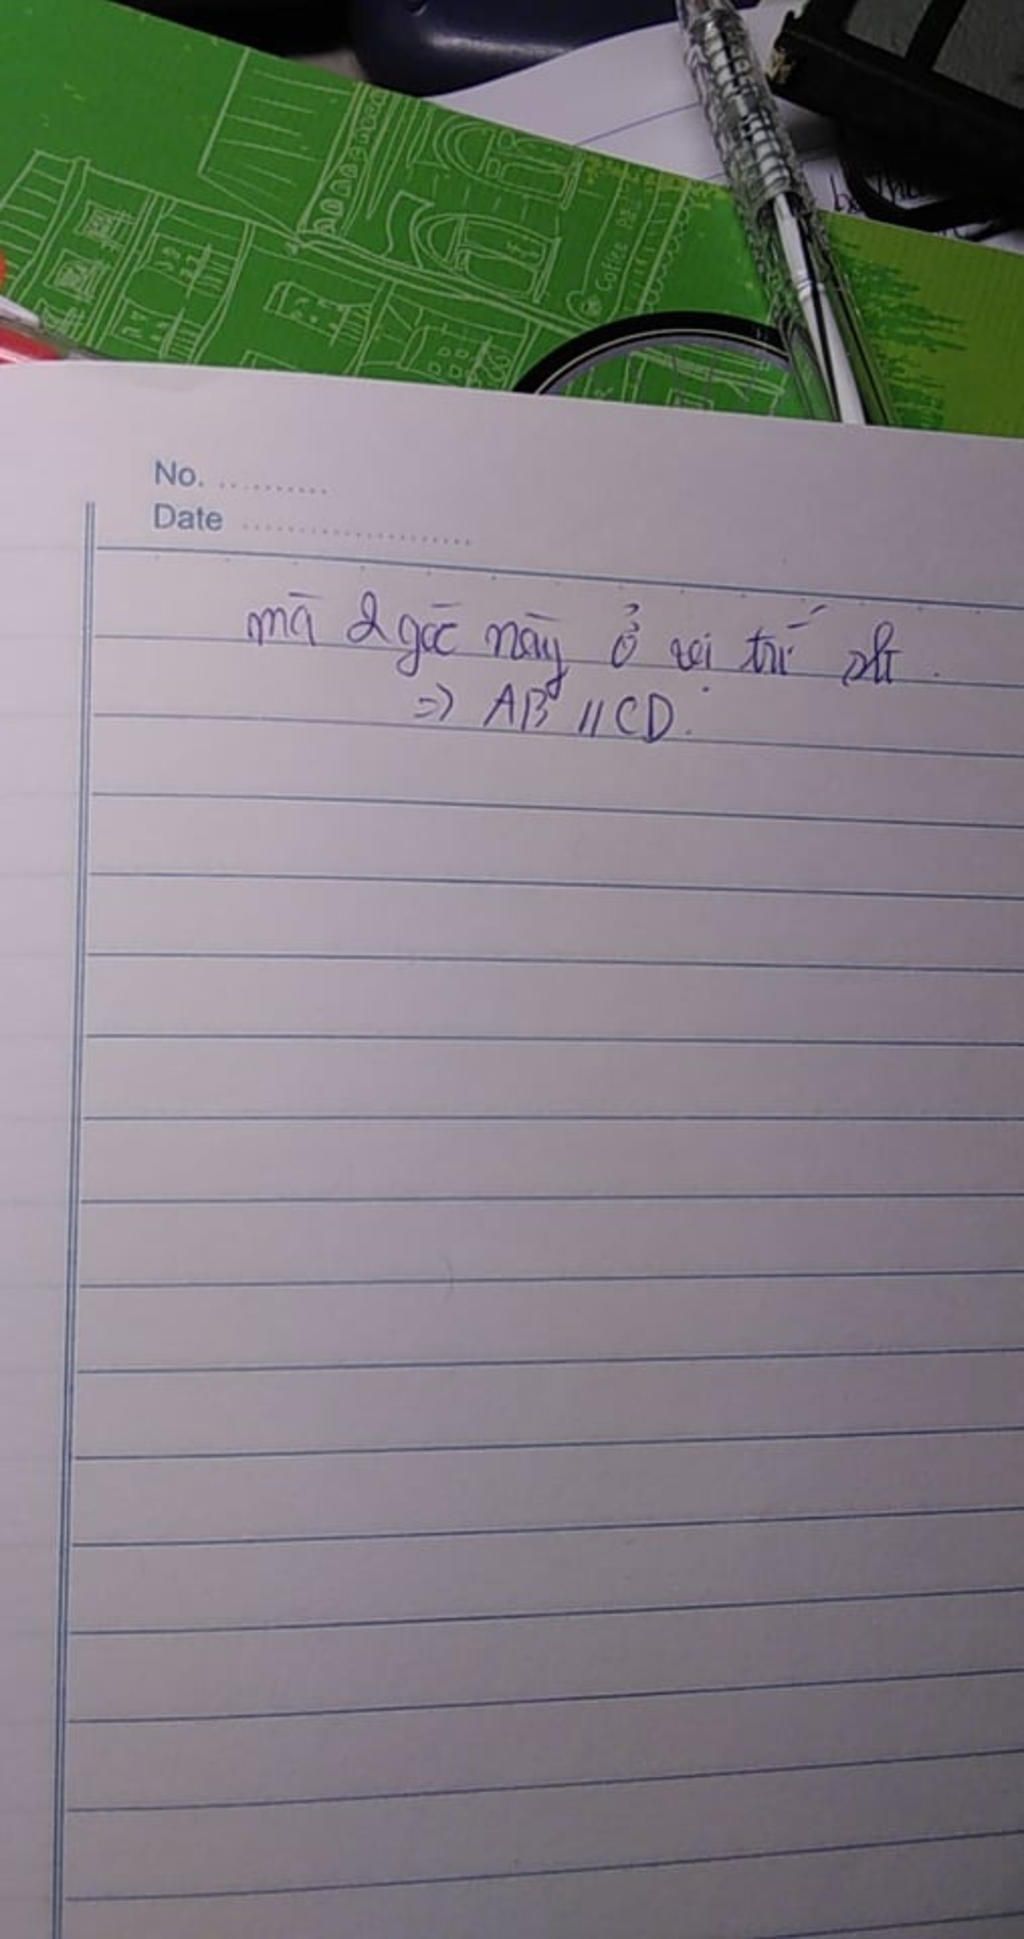 Coffee
No. ..........
Date ....................
mà 2 góc này ở vị trí slt.
=> AB // CD.